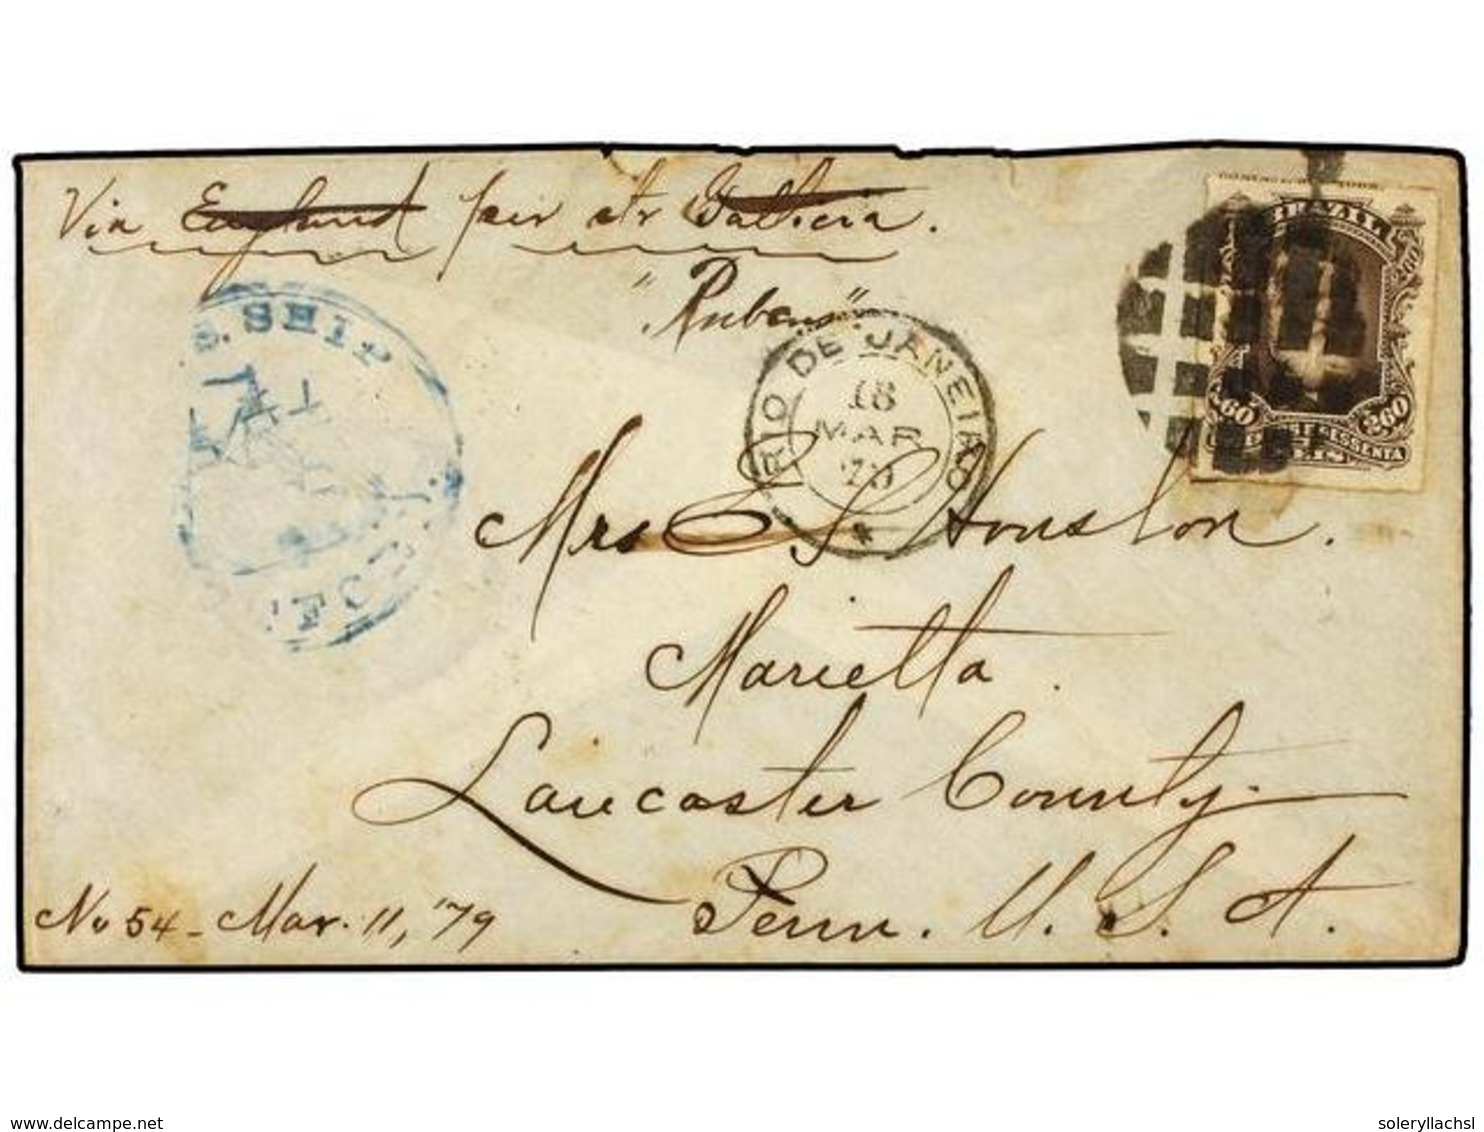 Via England per str Galicia.
"Rubens"
S. SHIP
RIO DE JANEIRO
18
MAR
79
BRAZIL
260 260
SESSENTA
REIS
Mrs E S Houston.
Marietta.
Lancaster County.
Penn. U. S. A.
No 54 - Mar. 11, '79
delcampe.net
soleryllachsl